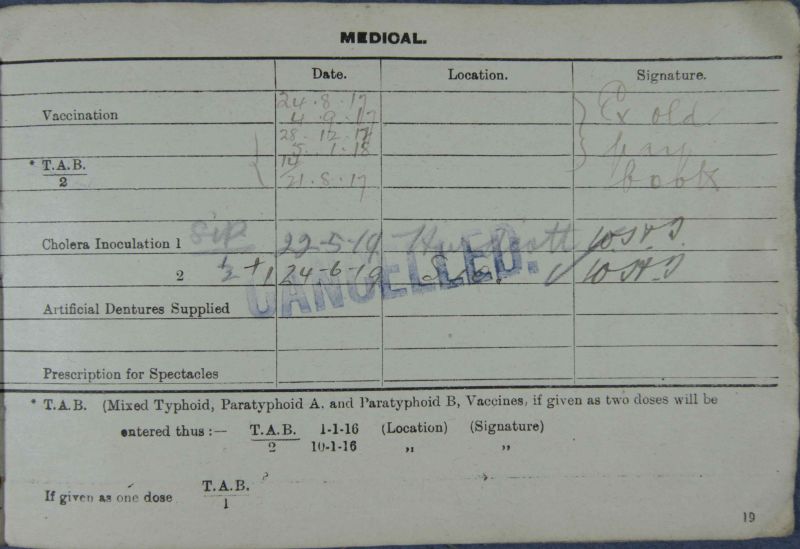 MEDICAL.
Date. Location. Signature.
Vaccination 24.8.17 Ex old
4.9.17
28.12.17 pay
* T.A.B. 5.1.18
2 21.8.17 book
Cholera Inoculation 1 22-5-19
2 1/2 + 1 24-6-19
CANCELLED.
Artificial Dentures Supplied
Prescription for Spectacles
* T.A.B. (Mixed Typhoid, Paratyphoid A. and Paratyphoid B, Vaccines, if given as two doses will be
entered thus :— T.A.B. 1-1-16 (Location) (Signature)
2 10-1-16 ,, ,,
If given as one dose T.A.B.
1
19